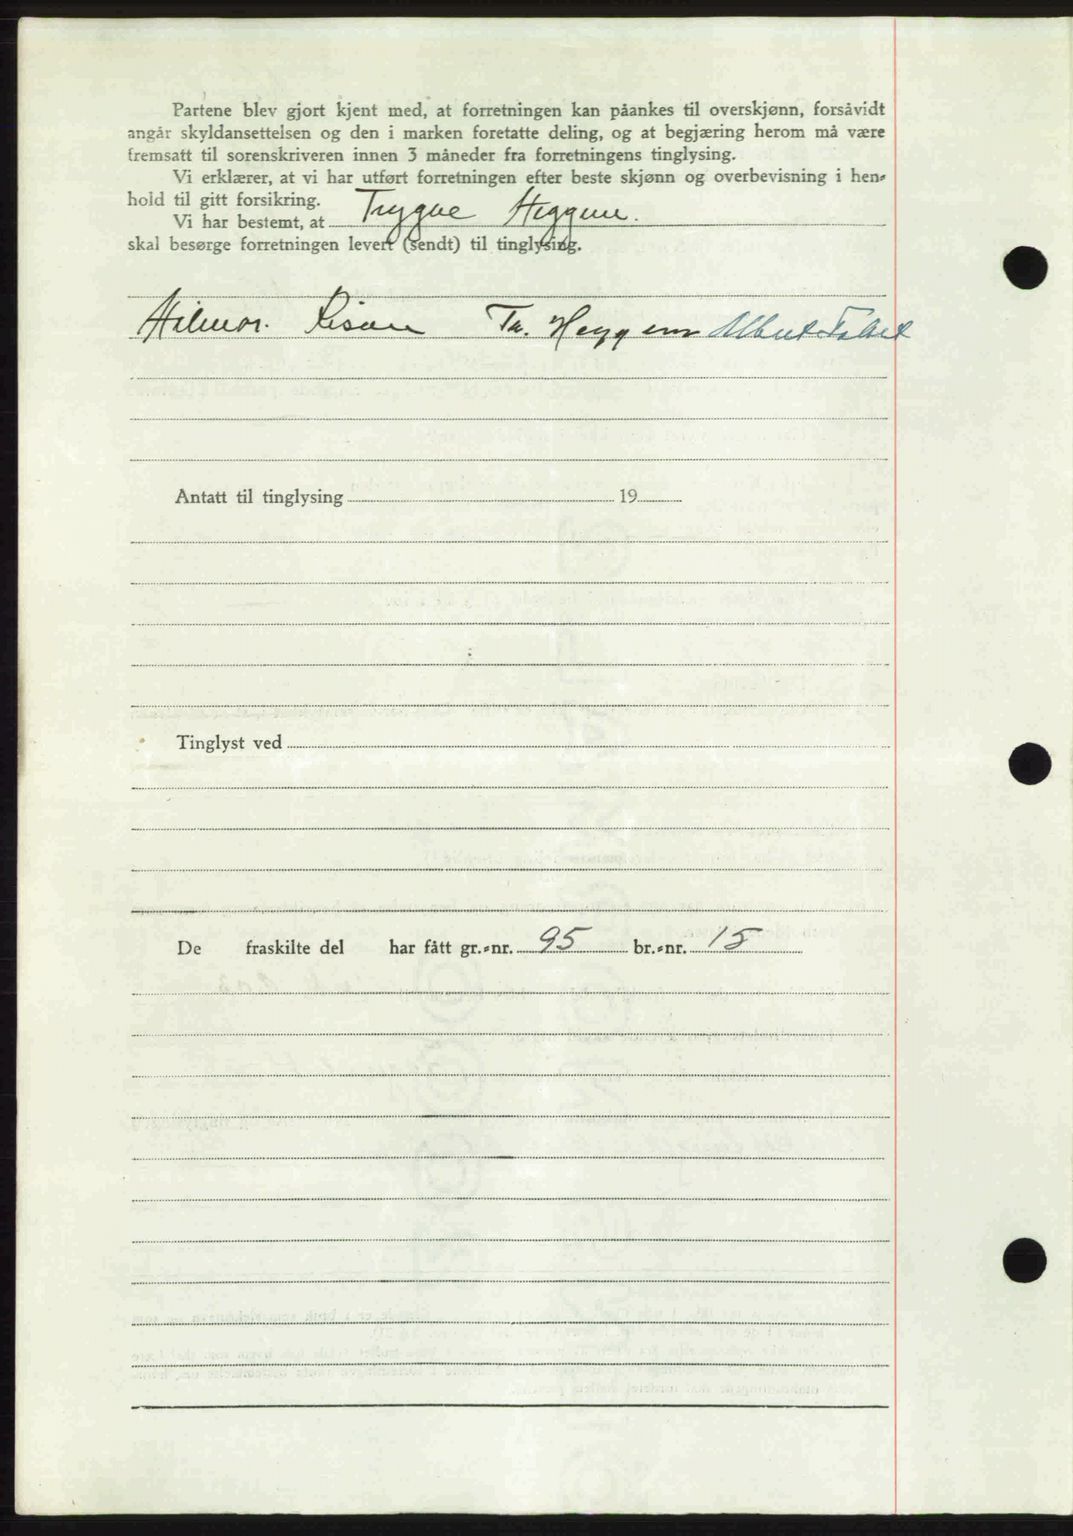 Partene blev gjort kjent med, at forretningen kan påankes til overskjønn, forsåvidt
angår skyldansettelsen og den i marken foretatte deling, og at begjæring herom må være
fremsatt til sorenskriveren innen 3 måneder fra forretningens tinglysing.
Vi erklærer, at vi har utført forretningen efter beste skjønn og overbevisning i hen-
hold til gitt forsikring.
Vi har bestemt, at Trygve Heggem.
skal besørge forretningen levert (sendt) til tinglysing.
Hilmar. Risan Tr. Heggem Albert
Antatt til tinglysing 19
Tinglyst ved
De fraskilte del har fått gr.-nr. 95 br.-nr. 15